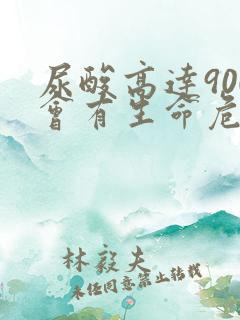 尿酸高達90
會有生命危
林毅夫
未经同意禁止转载